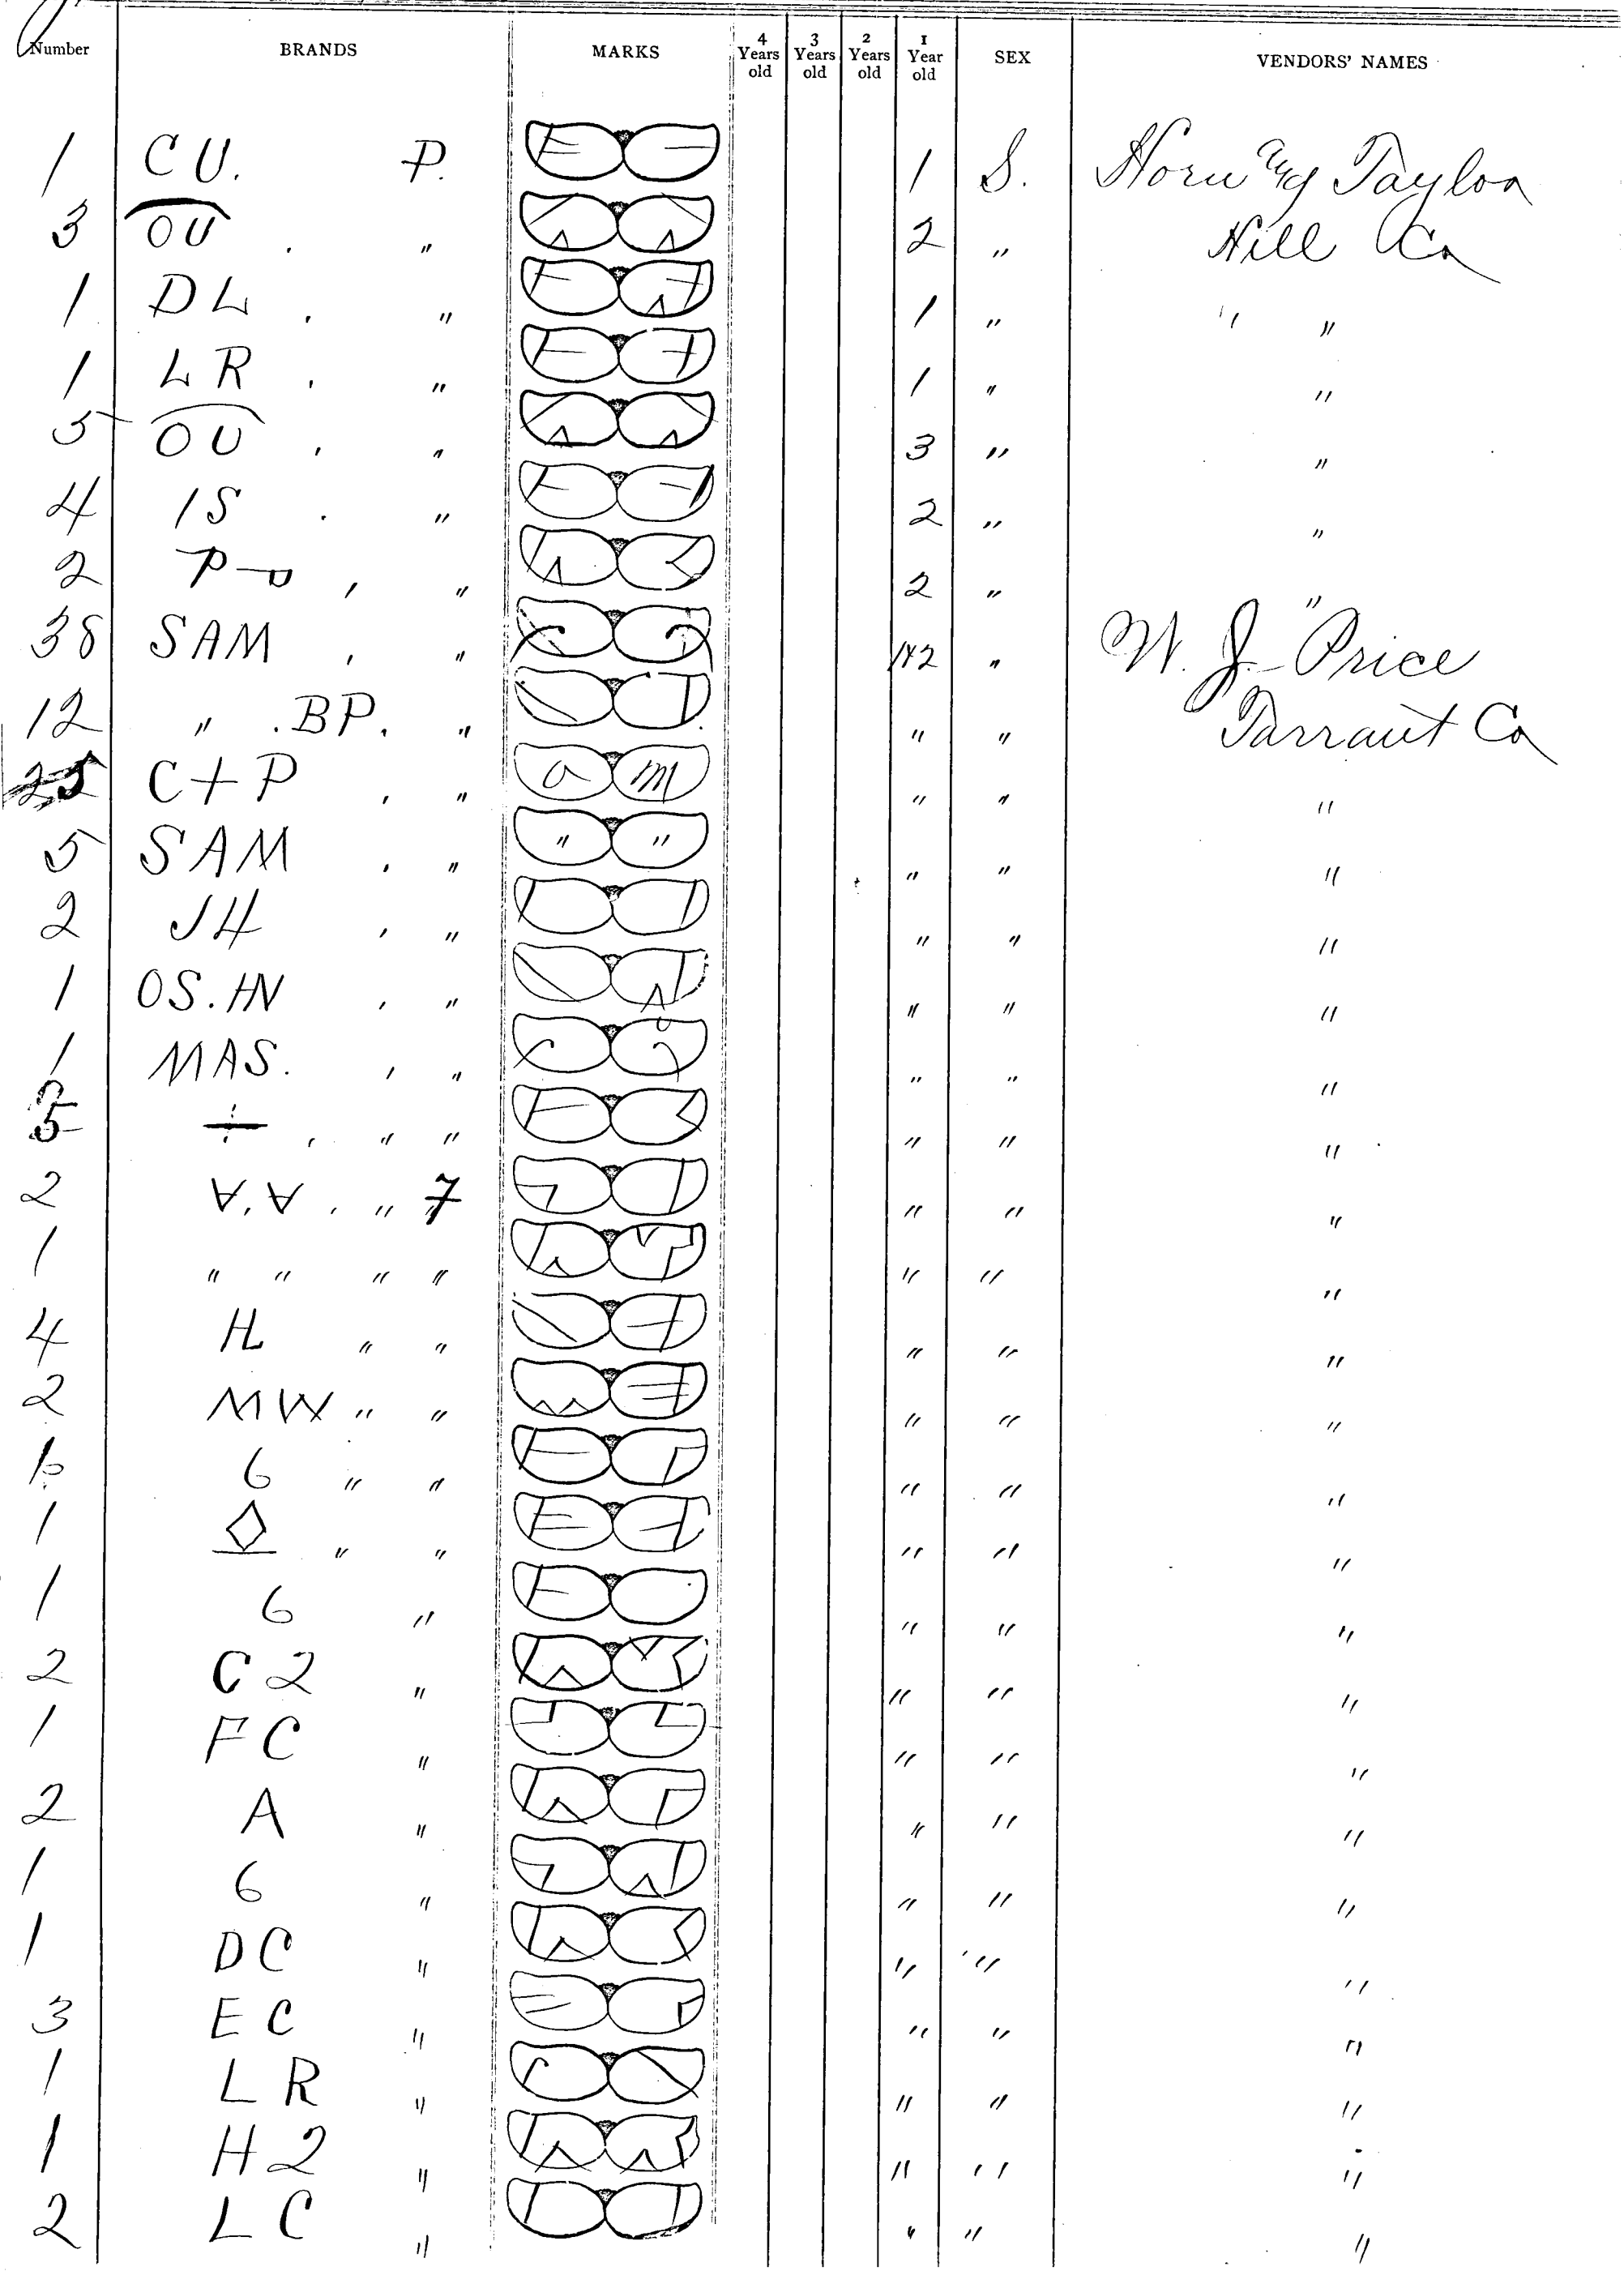 Number BRANDS MARKS 4 Years old 3 Years old 2 Years old 1 Year old SEX VENDORS' NAMES
1 CU. P. 1 S. Horn Taylor
3 OU . " 2 " Hill Co
1 DL . " 1 " " "
1 LR . " 1 " "
5 OU . " 3 " "
4 IS . " 2 " "
2 P , " 2 " "
38 SAM , " 1&2 " W. J. Price
12 " . BP. " " " Tarrant Co
25 C+P , " a m " " "
5 SAM . " " " " " "
2 JH , " " " "
1 OS. HN , " " " "
1 MAS. , " " " "
5 ÷ , " " " " "
2 ∀.∀ . " 7 " " "
1 " " " " " " "
4 H " " " " "
2 MW " " " " "
1 6 " " " " "
1 ◇ " " " " "
1 6 " " " "
2 C2 " " " "
1 FC " " " "
2 A " " " "
1 6 " " " "
1 DC " " " "
3 EC " " " "
1 LR " " " "
1 H2 " " " "
2 LC " " " "